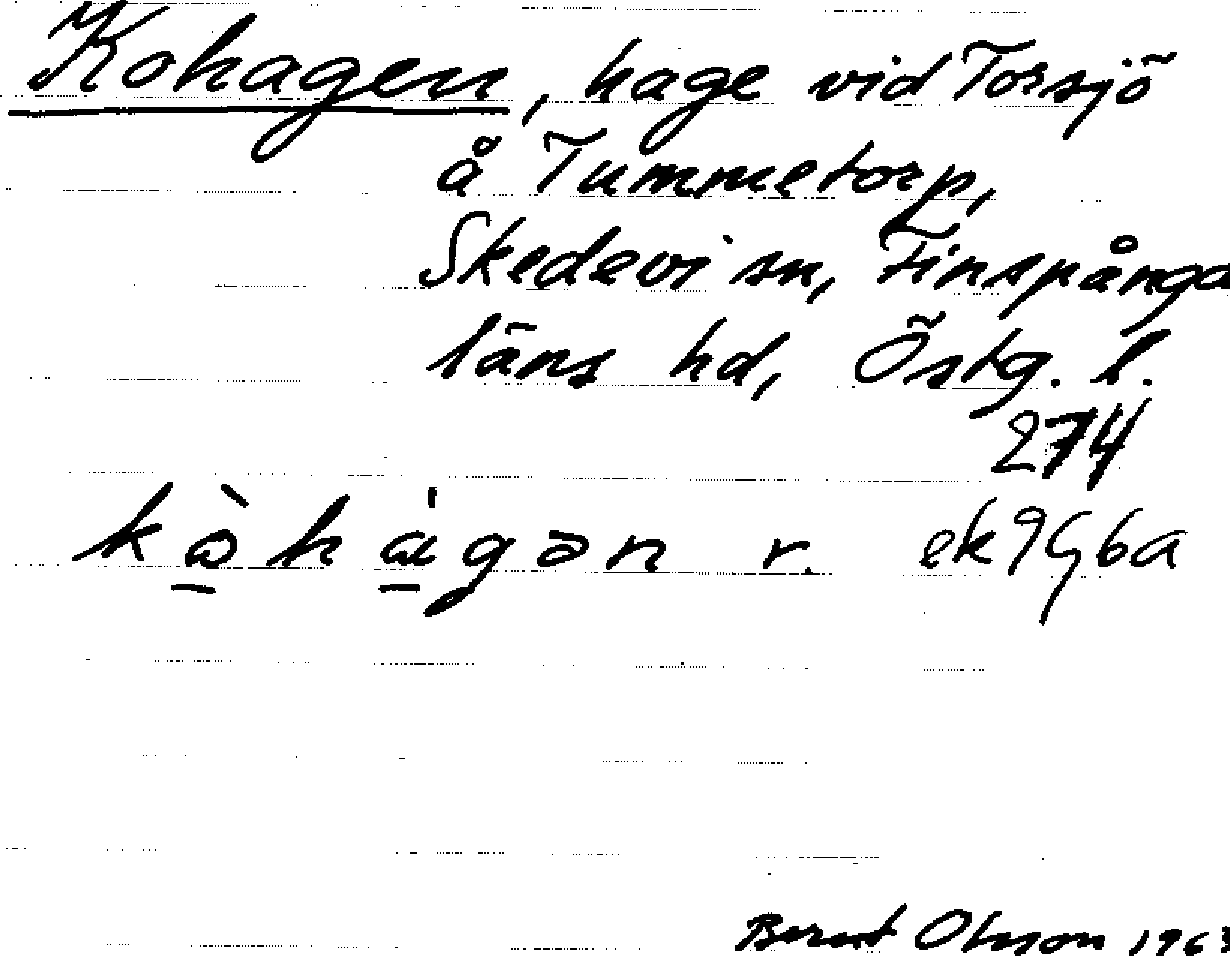 Kohagen, hage vid Torsjö
å Tummetorp,
Skedevi sn, Finspånga
läns hd, Östg. l.
274
ek 9G6a
Bernt Olsson